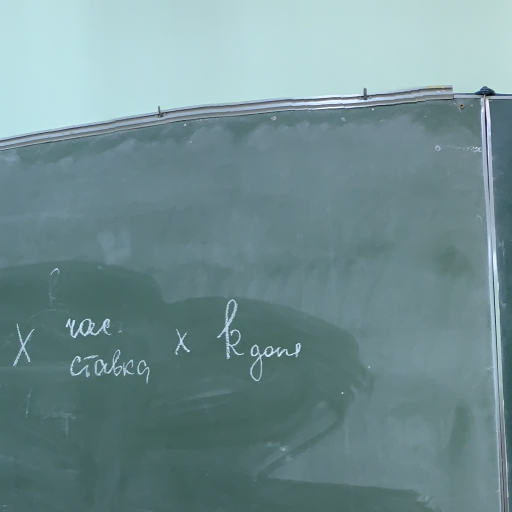 X час. ставка x k доп